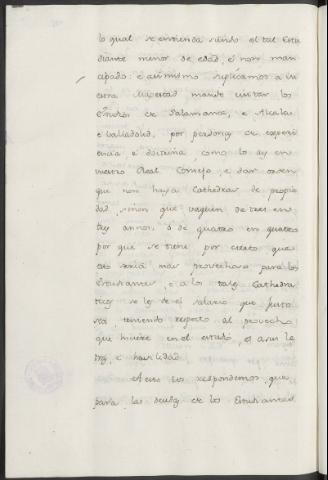 lo qual se entienda siendo el tal Estu
diante menor de edad, é non man
cipado: é asimismo suplicamos a vu
estra Majestad mande visitar los
Estudios de Salamanca, e Alcala
e Valladolid, por personas de experi
encia, é doctrina como lo ay en
vuestro Real Consejo, e dar orden
que non haya Cathedras de propie
dad, sinon que vaquen de tres en
tres annos, ó de quatro en quatro
por que se tiene por cierto que
esto seria mas provechoso para los
Estudiantes, e a los tales Cathedra
ticos se les de el salario que justo
sea, teniendo respecto al provecho
que hiciere en el estudio, é a sus le
tras, e habilidad.
A esto vos respondemos que
para las deudas de los Estudiantes